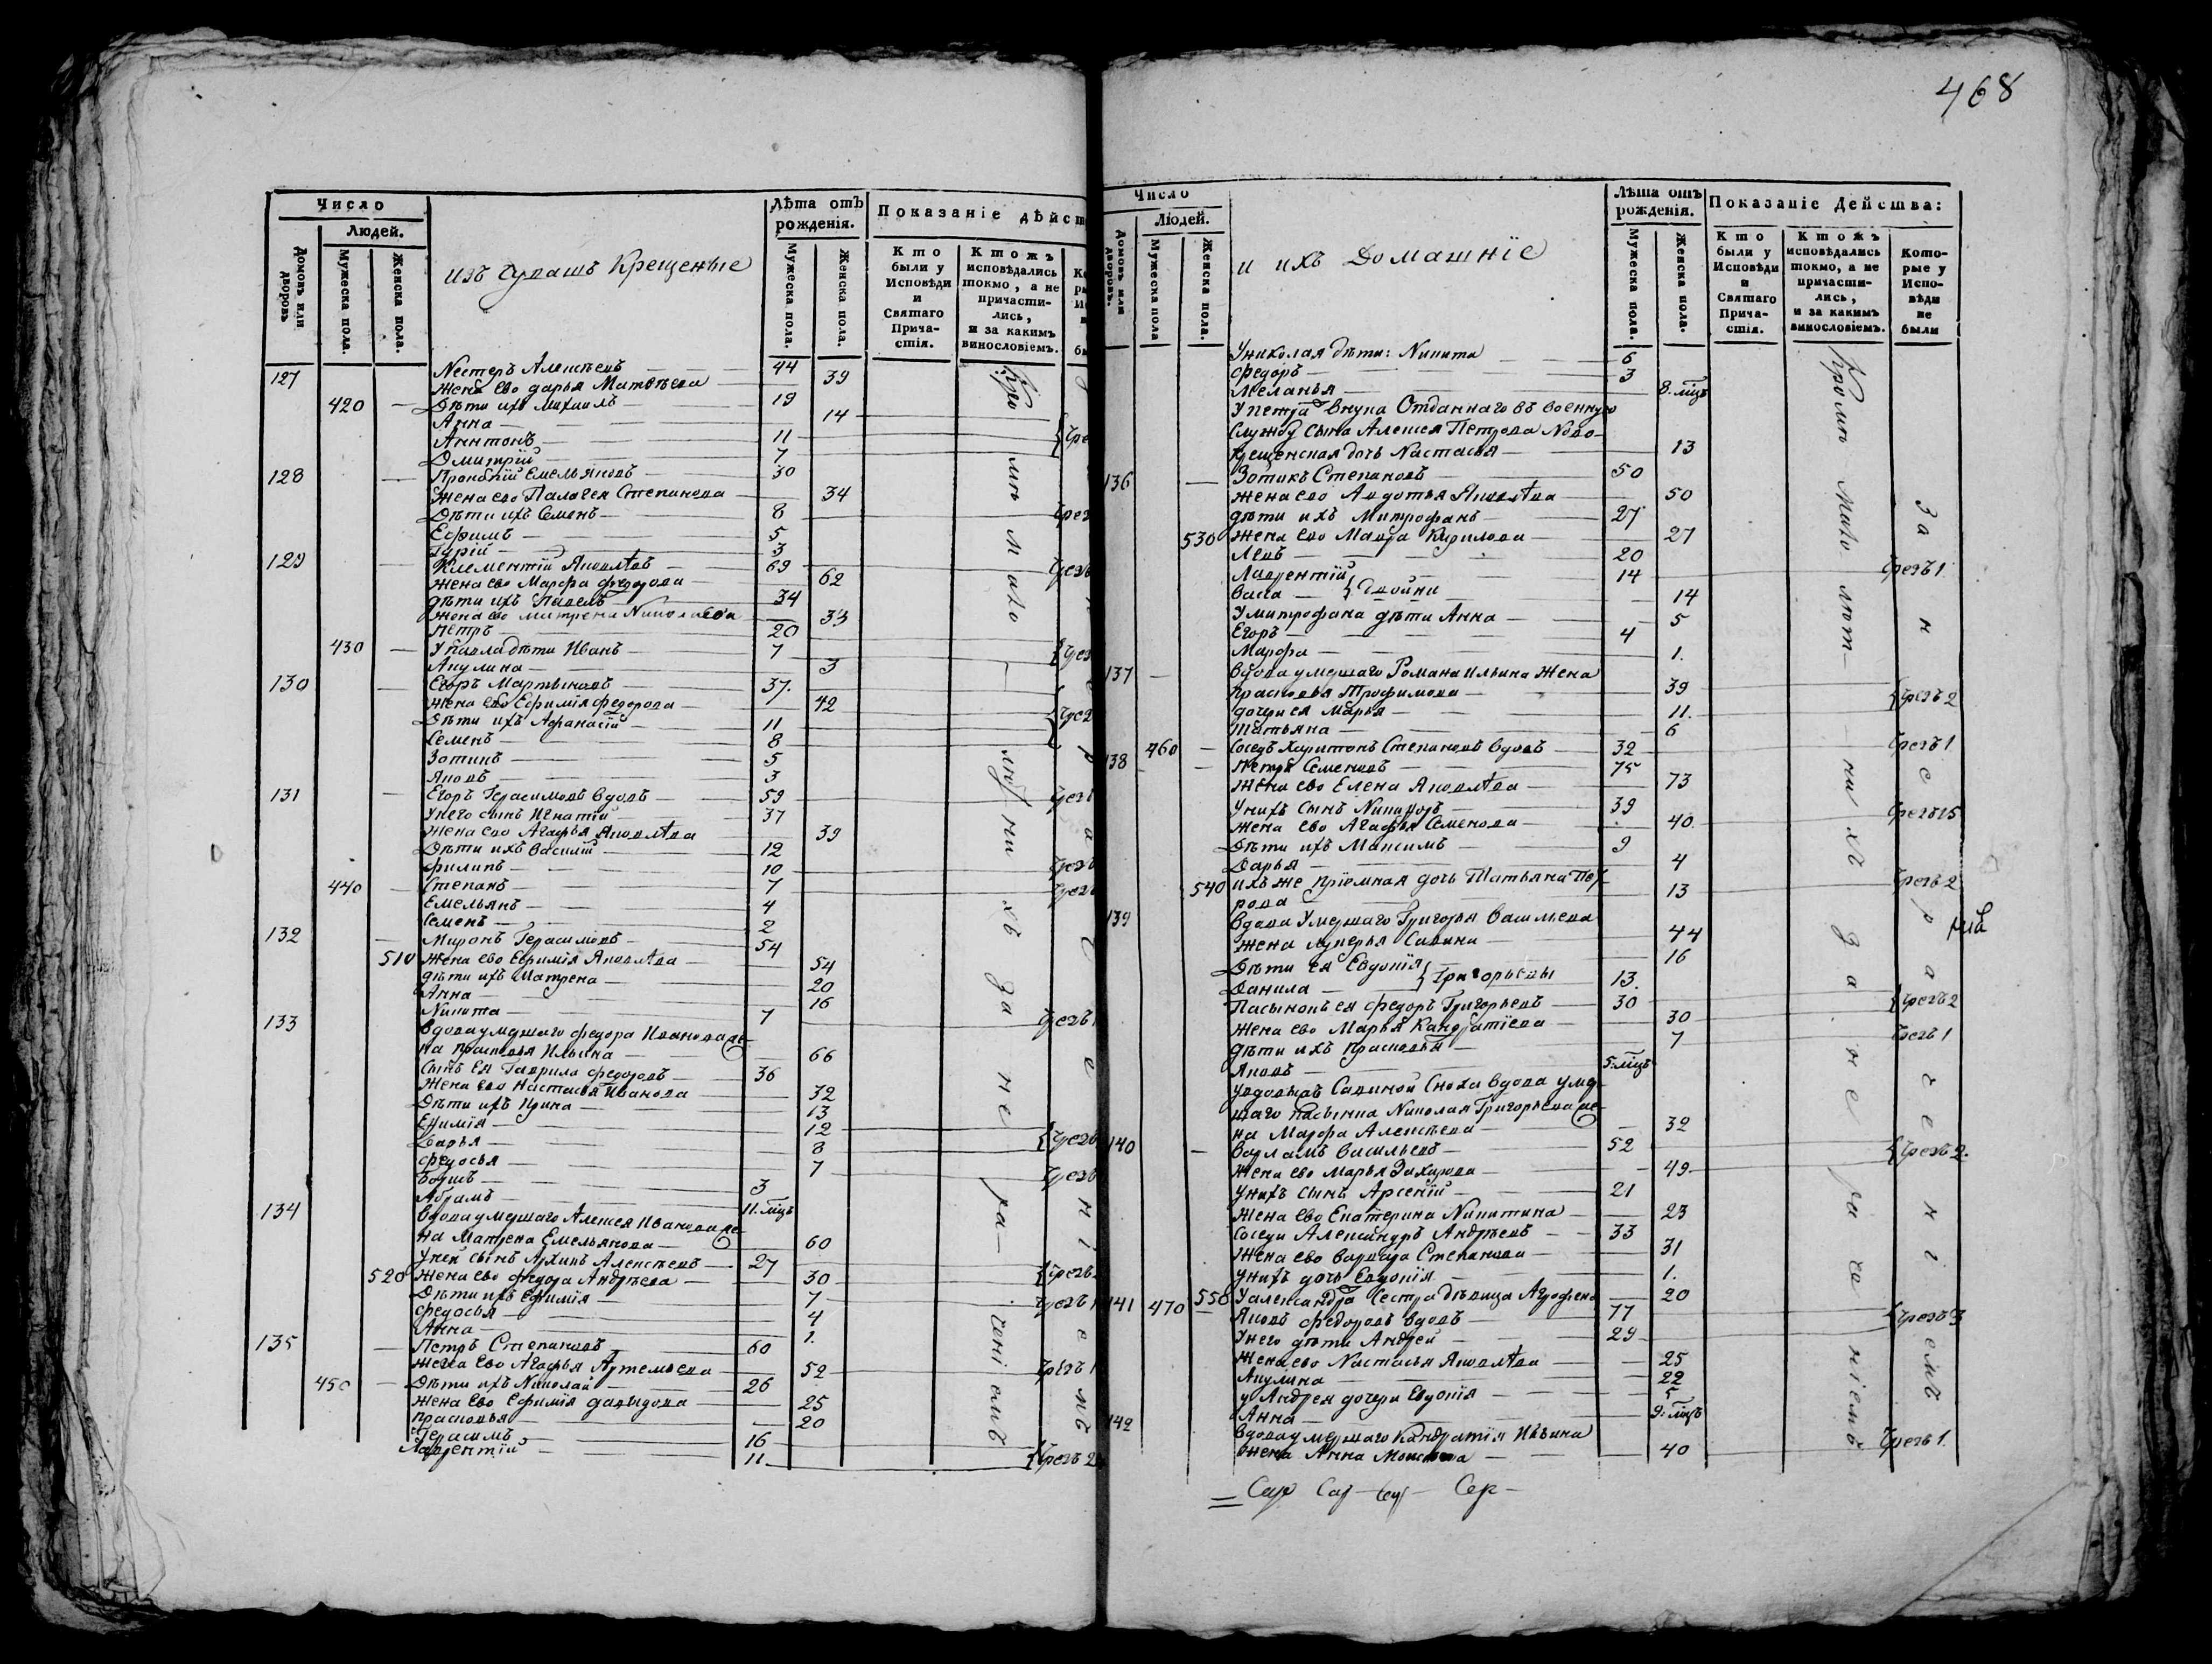 468
Число
Людей.
Домовъ или дворовъ
Мужеска пола.
Женска пола.
изъ Чувашъ Крещеные
Лѣта отъ рожденія.
Мужеска пола.
Женска пола.
Показаніе дѣйст
Кто были у Исповѣди и Святаго Причастія.
Ктожъ исповѣдались токмо, а не причастились, и за какимъ винословіемъ.
127 Нестеръ Алексѣевъ 44
жена ево дарья Матвѣева 39
420 Дѣти ихъ михаилъ 19
Анна 14
Антонъ 11
Дмитрій 7
128 Прокофій Емельяновъ 30
жена ево Палагея Степанова 34
Дѣти ихъ Семенъ 8
Ефимъ 5
Гурій 3
129 Клементій Яковлѣвъ 69
жена ево Марфа федорова 62
дѣти ихъ Павелъ 34
жена ево матрена Николаева 33
Петръ 20
430 У павла дѣти Иванъ 7
Акулина 3
130 Егоръ Мартыновъ 37.
жена ево Ефимія федорова 42
Дѣти ихъ Афанасій 11
Семенъ 8
Зотикъ 5
Яковъ 3
131 Егоръ Герасимовъ вдовъ 59
Унего сынъ Игнатій 37
жена ево Агафья Яковлѣва 39
Дѣти ихъ василій 12
филипъ 10
440 Степанъ 7
Емельянъ 4
Семенъ 2
132 Миронъ Герасимовъ 54
510 жена ево Ефимія Яковлѣва 54
дѣти ихъ Матрена 20
Анна 16
Никита 7
133 вдова умершаго федора Иванова же-
на прасковья Ильина 66
Сынъ ея Гаврила федоровъ 36
жена ево настасья Иванова 32
Дѣти ихъ Ирина 13
Ефимія 12
Дарья 8
федосья 7
3
Абрамъ 11. мцъ
134 вдова умершаго Алексея Иванова же-
на Матрена Емельянова 60
Уней сынъ Архипъ Алексѣевъ 27
520 жена ево федора Андрѣева 30
Дѣти ихъ Ефимія 7
федосья 4
Анна 1.
135 Петръ Степановъ 60
жена ево Агафья Артемьева 52
450 Дѣти ихъ Николай 26
жена ево Ефимія давыдова 25
прасковья 20
Герасимъ 16
Лаврентій 11
Число
Людей.
Домовъ или дворовъ.
Мужеска пола
Женска пола.
и ихъ Домашніе
Лѣта отъ рожденія.
Мужеска пола.
Женска пола.
Показаніе Действа:
Кто были у Исповѣди и Святаго Причастія.
Ктожъ исповѣдались токмо, а не причастились, и за какимъ винословіемъ.
Которые у Исповѣди не были
Униколая дѣти: Никита 6
федоръ 3
Меланья 8. мцъ
У петра внука Отданнаго въ военную
службу сына Алексея Петрова Ново-
крещенская дочь Настасья 13
136 Зотикъ Степановъ 50
жена ево Авдотья Яковлѣва 50
дѣти ихъ Митрофанъ 27
530 жена ево Мавра Кирилова 27
Левъ 20
Лаврентій 14 чрезъ 1
васса } двойни 14
Умитрофана дѣти Анна 5
Егоръ 4
Марфа 1.
137 вдова умершаго Романа Ильина жена
прасковья Трофимова 39
дочери ея Марья 11. чрезъ 2
Татьяна 6
460 Соседъ Харитонъ Степановъ вдовъ 32 чрезъ 1
138 Петръ Семеновъ 75
жена ево Елена Яковлѣва 73
Унихъ сынъ Никифоръ 39
жена ево Агафья Семенова 40 чрезъ 15
Дѣти ихъ Максимъ 9
Дарья 4
540 ихъже пріемная дочь Татьяна Пет-
рова 13 чрезъ 2
139 вдова Умершаго Григорья васильева
жена лукерья Савина 44
Дѣти ея Евдокія 16
Данила } Григорьевы 13.
Пасынокъ ея федоръ Григорьевъ 30 чрезъ 2
жена ево Марья Кандратіева 30
дѣти ихъ прасковья 7 чрезъ 1
Яковъ 5. мцъ
Увдовы Савиной Сноха вдова умер-
шаго пасынка Николая Григорьева же-
на Марфа Алексѣева 32
140 варламъ васильевъ 52 чрезъ 2.
жена ево марья Захарова 49
Унихъ сынъ Арсеній 21
жена ево Екатерина Никитина 23
Соседи Александръ Андрѣевъ 33
жена ево варвара Степанова 31
Унихъ дочь Евдокія 1.
550 Уалександра Сестра дѣвица Агрофена 20
141 470 Яковъ федоровъ вдовъ 77 чрезъ 3
Унего дѣти Андрей 29
жена ево Настасья Яковлѣва 25
Акулина 22
у Андрея дочери Евдокія 5
Анна 9: мцъ
142 вдова умершаго Кандратія Ильина
жена Анна Моисеева 40 чрезъ 1.